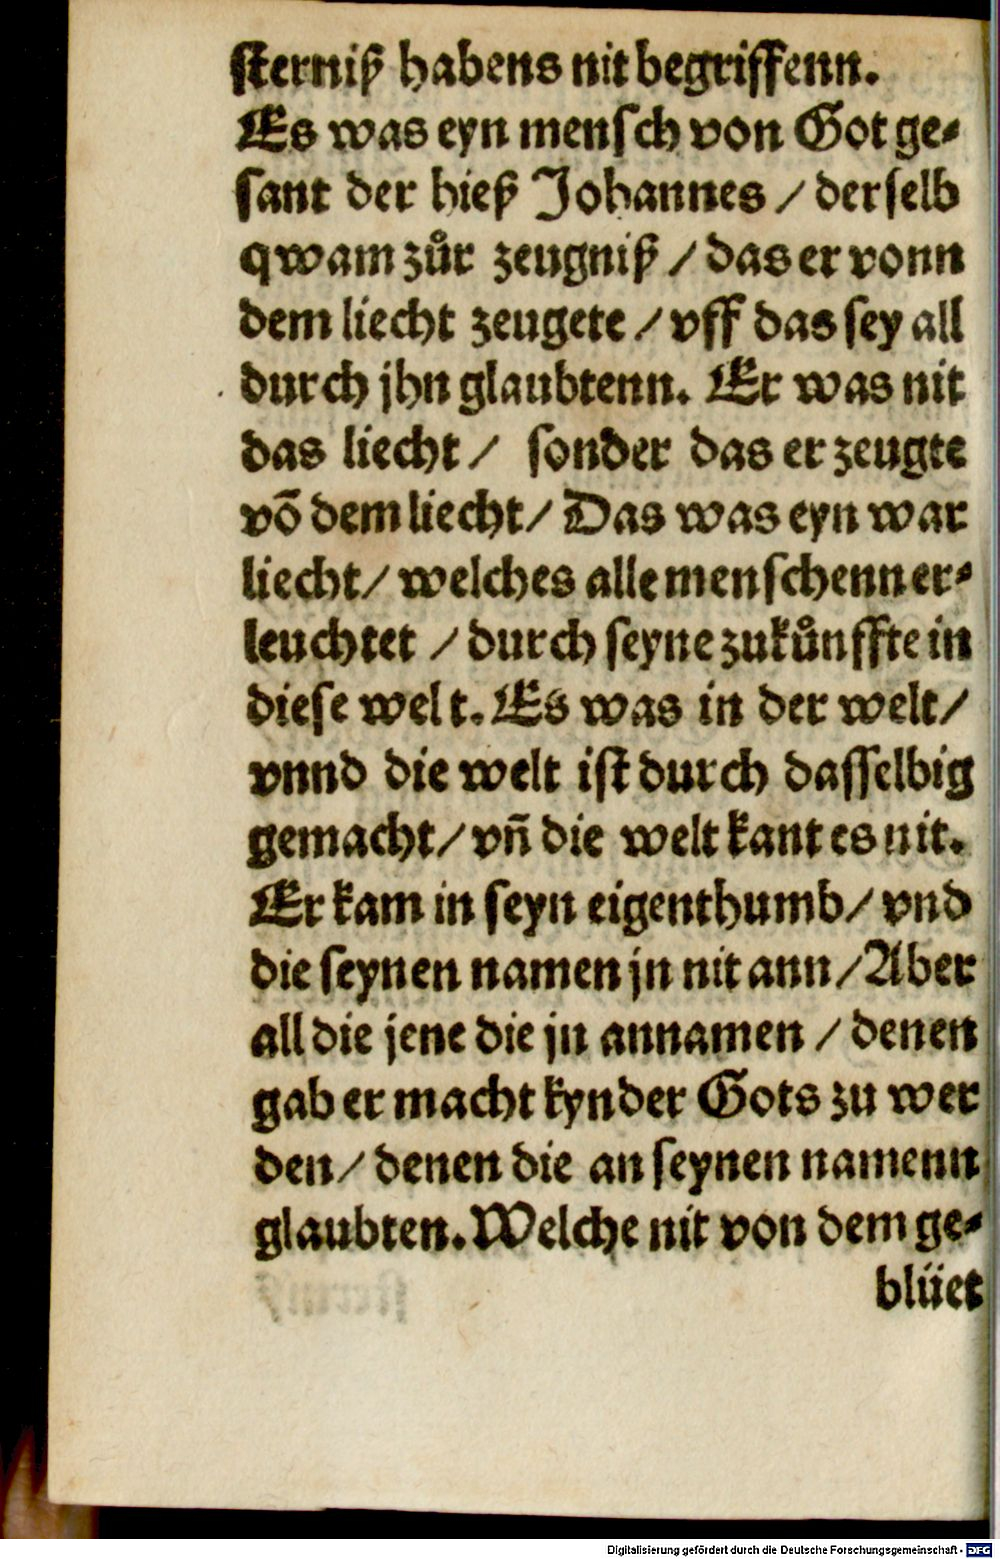 sterniß habens nit begriffenn.
Es was eyn mensch von Got ge⸗
sant der hieß Johannes / derselb
qwam zůr zeugniß / das er vonn
dem liecht zeugete / vff das sey all
durch jhn glaubtenn. Er was nit
das liecht / sonder das er zeugte
võ dem liecht / Das was eyn war
liecht / welches alle menschenn er⸗
leuchtet / durch seyne zukůnffte in
diese welt. Es was in der welt /
vnnd die welt ist durch dasselbig
gemacht / vñ die welt kant es nit.
Er kam in seyn eigenthumb / vnd
die seynen namen jn nit ann / Aber
all die jene die jn annamen / denen
gab er macht kynder Gots zu wer
den / denen die an seynen namenn
glaubten. Welche nit von dem ge⸗
blüet
Digitalisierung gefördert durch die Deutsche Forschungsgemeinschaft - DFG